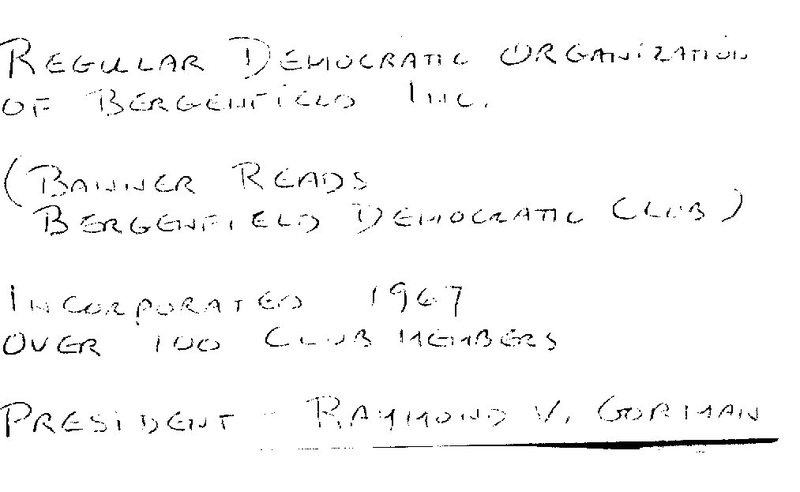 REGULAR DEMOCRATIC ORGANIZATION
OF BERGENFIELD INC.
(BANNER READS
BERGENFIELD DEMOCRATIC CLUB)
INCORPORATED 1967
OVER 100 CLUB MEMBERS
PRESIDENT - RAYMOND V. GORMAN